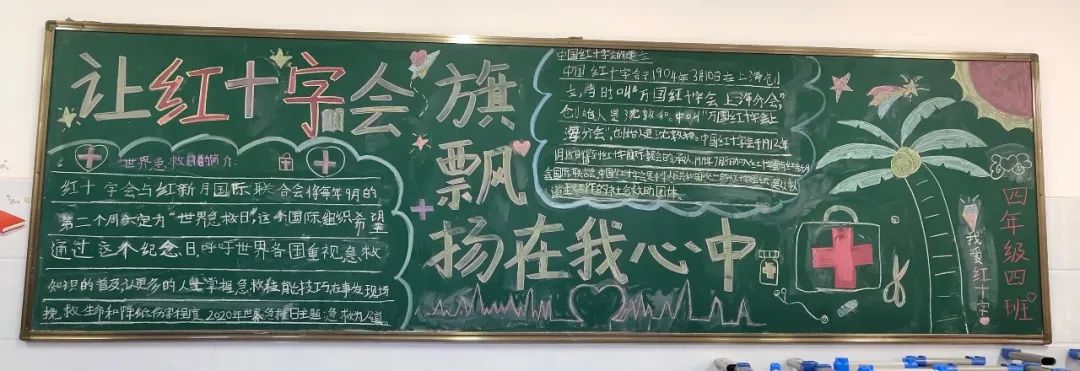 让红十字会旗
飘
扬在我心中
世界急救日的简介:
红十字会与红新月国际联合会将每年9月的
第二个周六定为“世界急救日”这个国际组织希望
通过这个纪念日,呼吁世界各国重视急救
知识的普及,让更多的人士掌握急救技能技巧在事发现场
挽救生命和降低伤害程度,2020年世界急救日主题:急救为人道
中国红十字会的建立
中国红十字会于1904年3月10日在上海创
立,当时叫“万国红十字会上海分会”
创始人是沈敦和.中叫“万国红十字会上
海分会”.创始人是沈敦和.中国红十字会于1912年
道主义工作的社会救助团体
我爱红十字
四年级四班